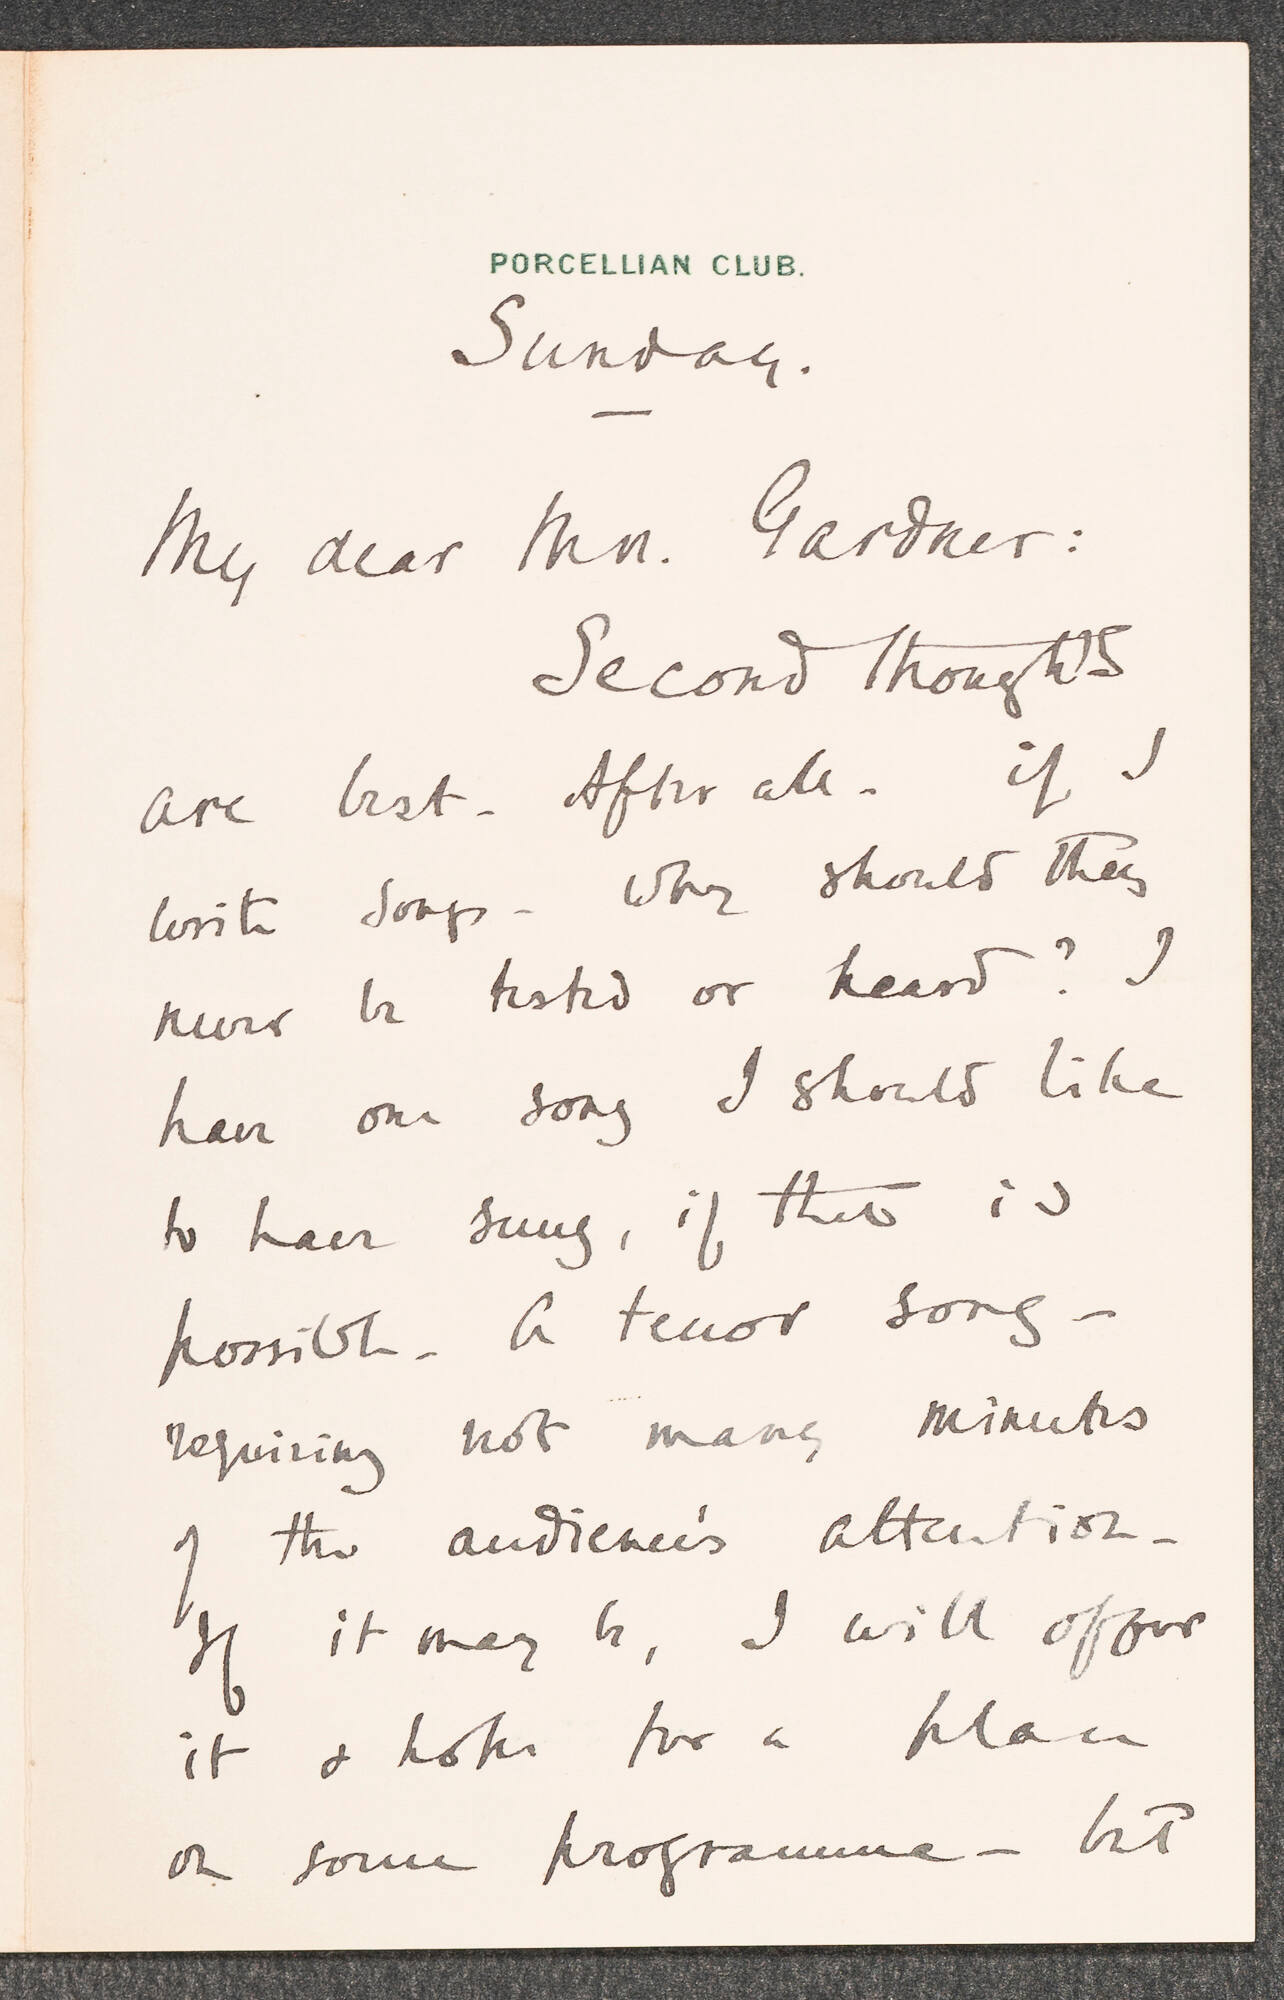 PORCELLIAN CLUB.
Sunday.
My dear Mrs. Gardner:
Second thoughts
are best. After all - if I
write songs - why should they
never be tested or heard? I
have one song I should like
to have sung, if there is
possible - A tenor song -
requiring not many minutes
of the audience's attention -
If it may be, I will offer
it & hope for a place
on some programme - but